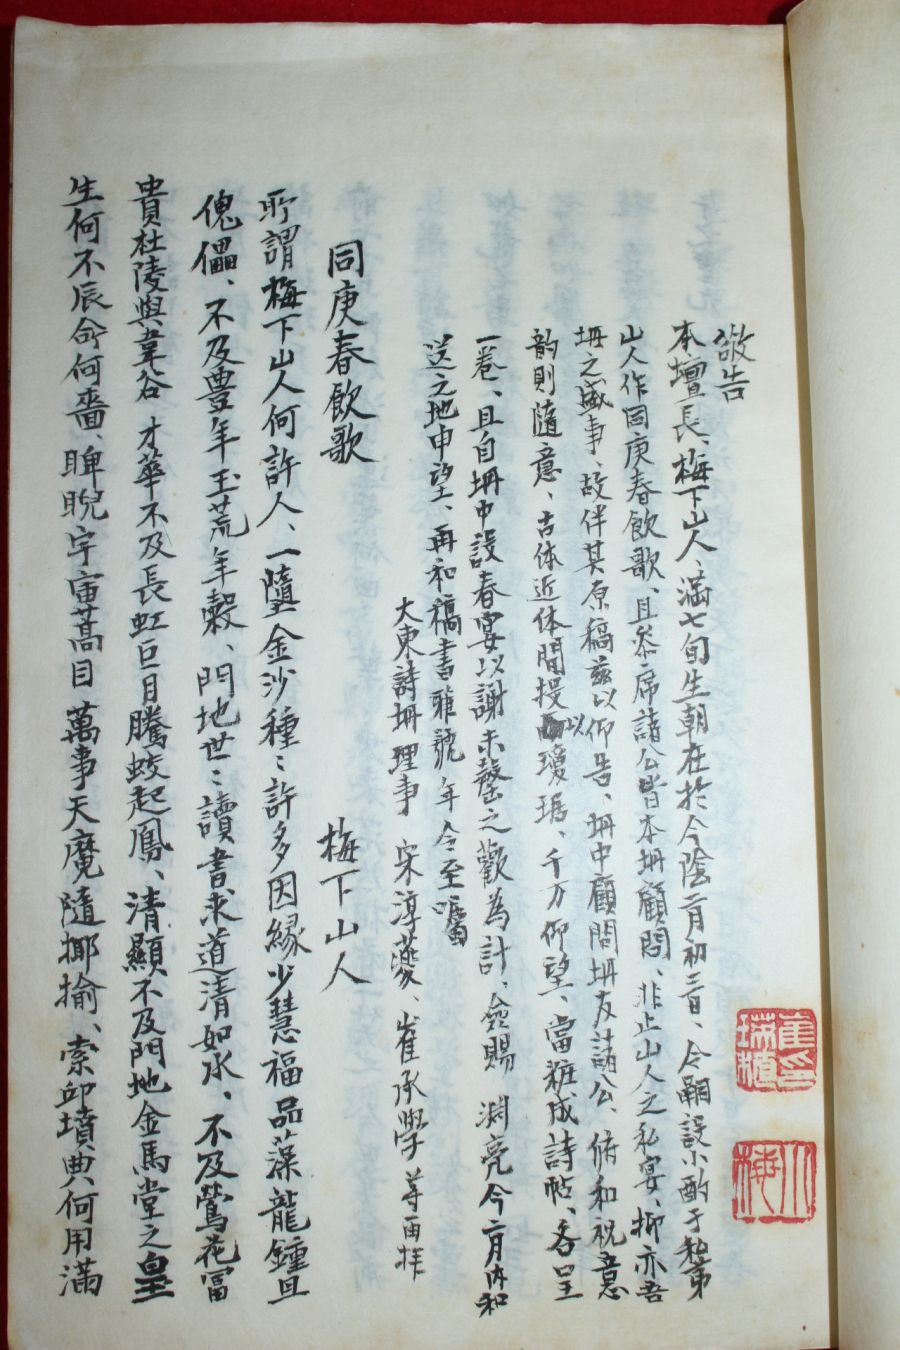 敬告
本壇長、梅下山人、滿七旬生朝在於今陰二月初三日、令嗣設小酌于勢第
山人作同庚春飮歌、且參席諸公皆本坍顧問、非止山人之私宴、抑亦吾
坍之盛事、故伴其原稿玆以仰告、坍中顧問坍友諸公、俯和祝意
韵則隨意、古体近体間投以瓊琚、千万仰望、當粧成詩帖、各呈
一卷、且自坍中設春宴以謝未罄之歡為計、僉賜 淵亮今二月內和
送之地申望、再和稿書雅號年令至囑
大東詩坍理事 宋淳夔、崔承學 等 再拜
同庚春飮歌
梅下山人
所謂梅下山人何許人、一墮金沙種〻許多因緣少慧福品藻龍鍾且
傀儡、不及豊年玉荒年穀、門地世〻讀書求道淸如水、不及鶯花富
貴杜陵與韋谷 才華不及長虹巨月騰蛟起鳳、淸顯不及門地金馬堂之皇
生何不辰命何嗇、睥睨宇宙蒿目 萬事天魔隨揶揄、索邱墳典何用滿
崔瑞植印
梅下